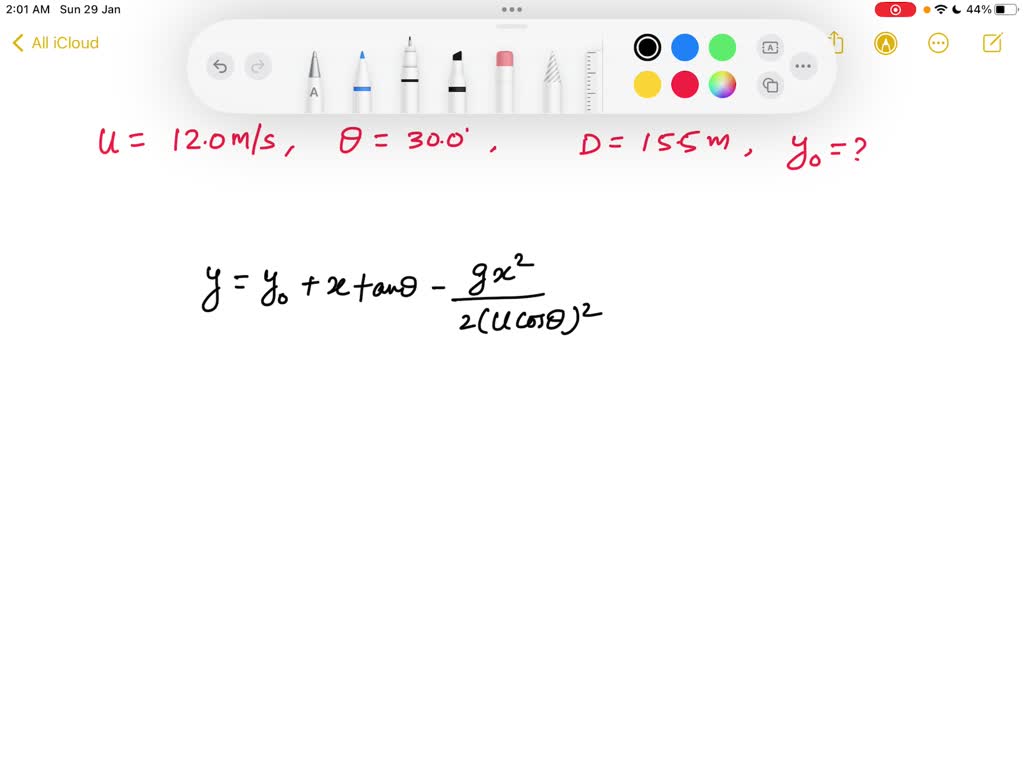 2:01 AM Sun 29 Jan
44%
All iCloud
A
A
u = 12.0 m/s, θ = 30.0°, D = 155 m, y₀ = ?
y = y₀ + x tanθ - gx² / 2(u cosθ)²